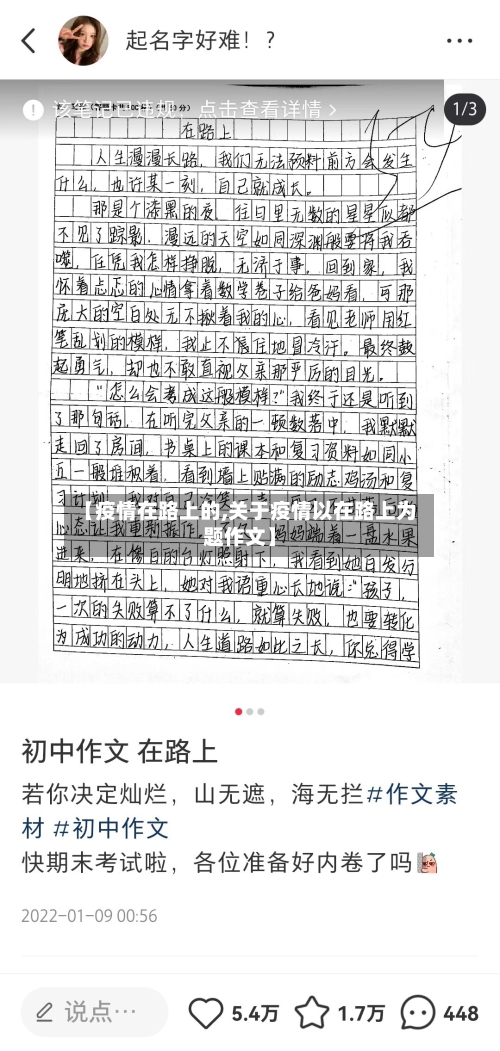 起名字好难！?
该笔记已违规，点击查看详情 >
1/3
在路上
人生漫漫长路，我们无法预料前方会发生
什么，也许某一刻，自己就成长。
那是个漆黑的夜，往日里无数的星星似都
不见了踪影，漫远的天空如同深渊般要将我吞
噬，任凭我怎样挣脱，无济于事，回到家，我
怀着忐忑的心情拿着数学卷子给爸妈看，可那
庞大的空白处无不揪着我的心，看见老师用红
笔乱划的模样，我止不住地冒冷汗。最终鼓
起勇气，却也不敢直视父亲那严厉的目光。
“怎么会考成这般模样?”我终于还是听到
了那句话，在听完父亲的一顿数落中，我默默
走回了房间，书桌上的课本和复习资料如同小
丘一般堆积着，看到墙上贴满的励志鸡汤和复
习计划
【疫情在路上的,关于疫情以在路上为
题作文】
心态让我重新振作 妈妈端着一盘水果
进来，在惨白的台灯照射下，我看到她白发分
明地挤在头上，她对我语重心长地说:“孩子，
一次的失败算不了什么，就算失败，也要转化
为成功的动力，人生道路如此之长，你总得学
初中作文 在路上
若你决定灿烂，山无遮，海无拦#作文素
材 #初中作文
快期末考试啦，各位准备好内卷了吗
2022-01-09 00:56
说点…
5.4万
1.7万
448